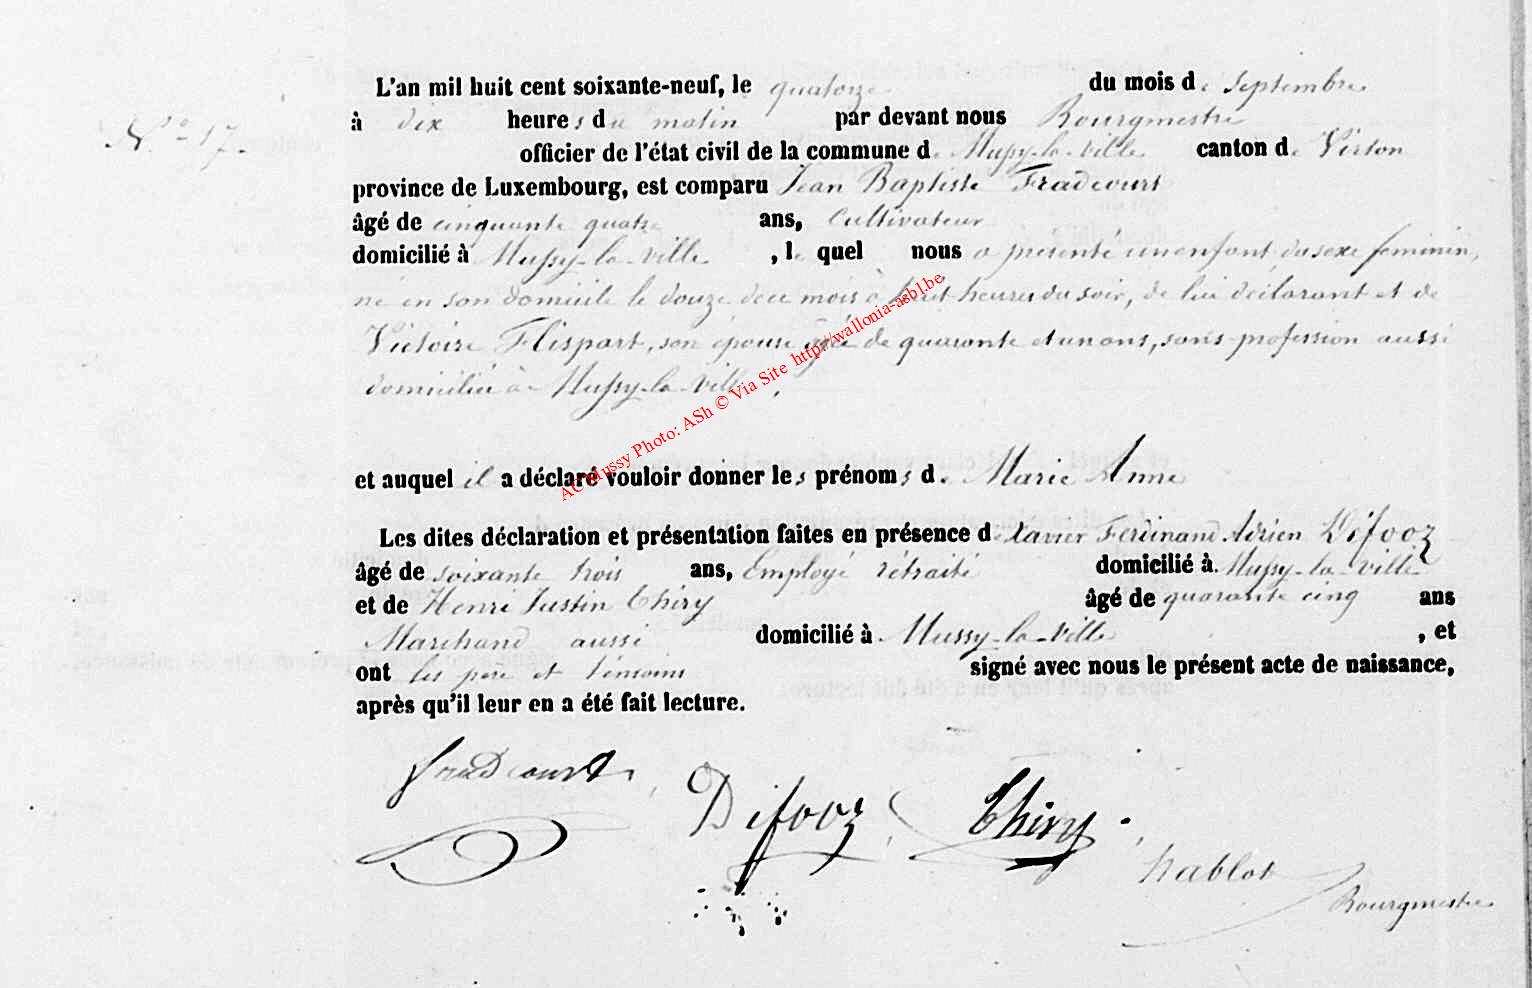 L'an mil huit cent soixante-neuf, le quatorze du mois de Septembre
N.° 17.
à dix heures du matin par devant nous Bourgmestre
officier de l'état civil de la commune de Mussy-la-ville canton de Virton
province de Luxembourg, est comparu Jean Baptiste Fradcourt
âgé de cinquante quatre ans, Cultivateur
domicilié à Mussy-la-ville, le quel nous a présenté un enfant du sexe feminin,
né en son domicile le douze de ce mois à huit heures du soir, de lui déclarant et de
Victoire Flispart, son épouse agée de quarante et un ans, sans profession aussi
domiciliée à Mussy-la-ville.
et auquel il a déclaré vouloir donner les prénoms de Marie Anne
Les dites déclaration et présentation faites en présence de Xavier Ferdinand Adrien Difooz
âgé de soixante trois ans, Employé rétraité domicilié à Mussy-la-ville
et de Henri Justin Thiry âgé de quarante cinq ans
Marchand aussi domicilié à Mussy-la-ville, et
ont les pere et témoins signé avec nous le présent acte de naissance,
après qu'il leur en a été fait lecture.
Fradcourt
Difooz
Thiry
Nablot
Bourgmestre
AC Mussy Photo: ASh © Via Site http://wallonia-asbl.be